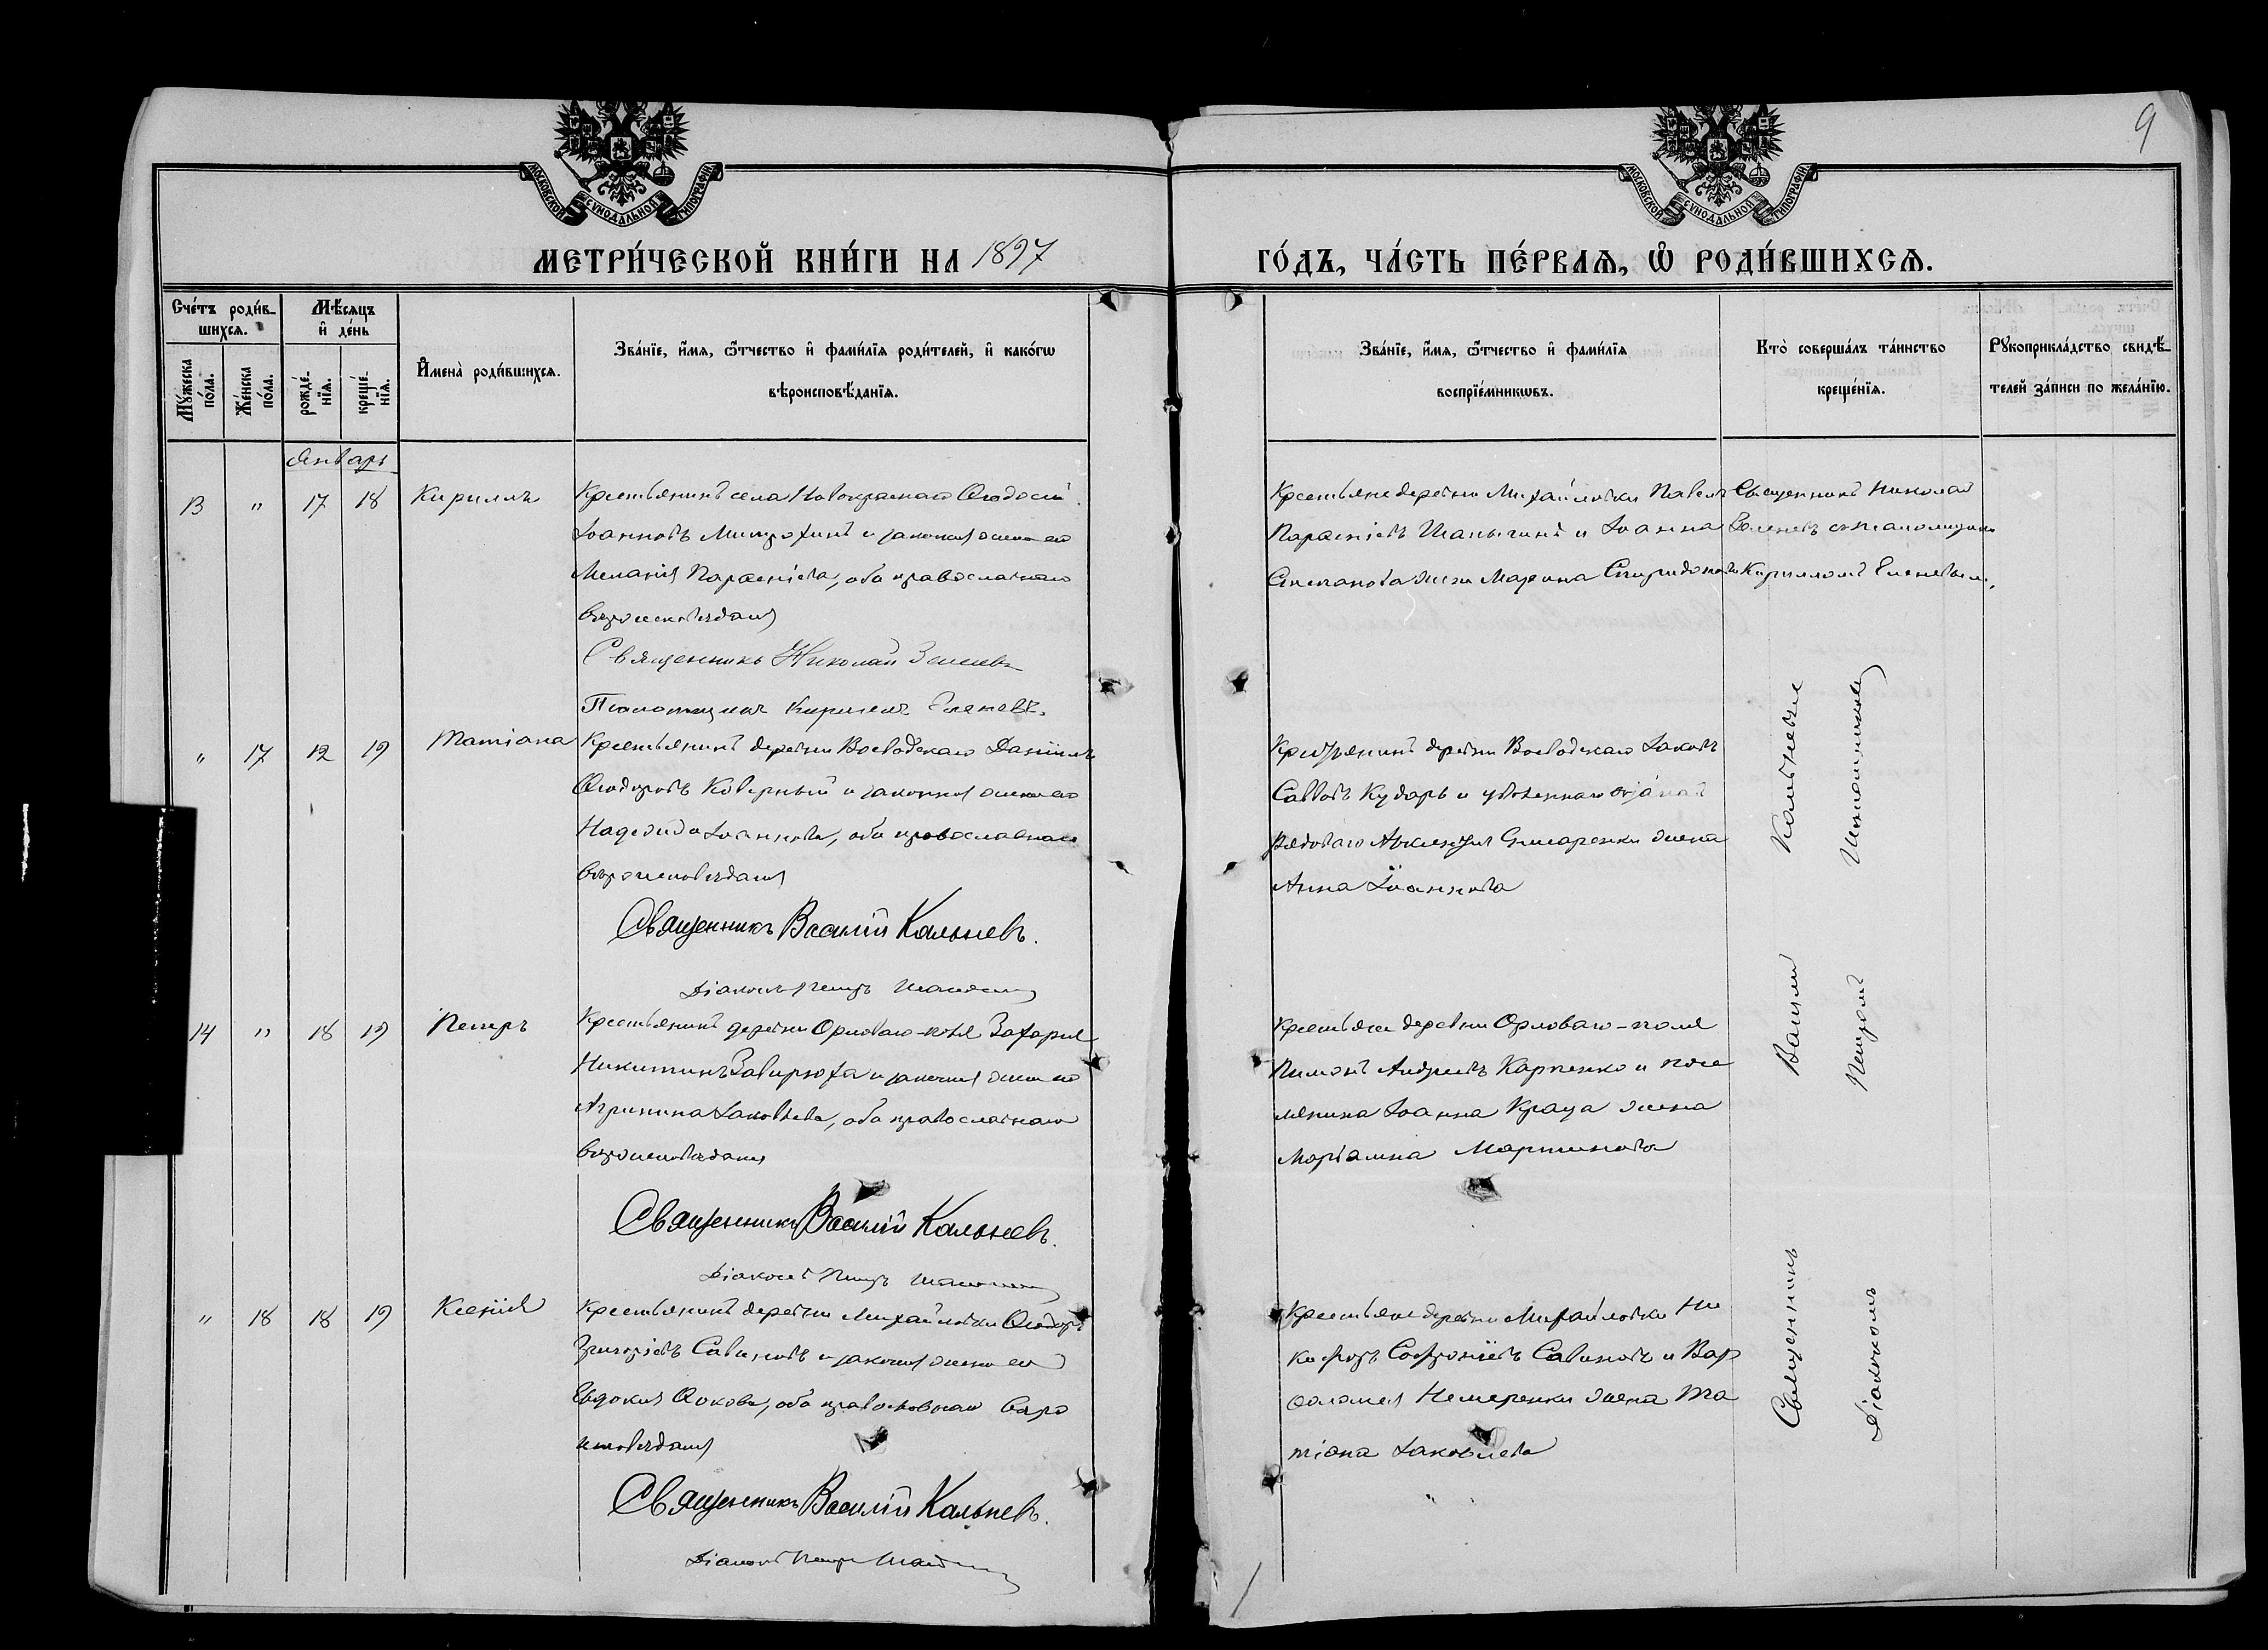 9
МОСКОВСКОЙ СУНОДАЛЬНОЙ ТИПОГРАФІИ
МОСКОВСКОЙ СУНОДАЛЬНОЙ ТИПОГРАФІИ
МЕТРИ́ЧЕСКОЙ КНИ́ГИ НА 1897
ГО́ДЪ, ЧА́СТЬ ПЕ́РВАЯ, Ѡ РОДИ́ВШИХСЯ.
Сче́тъ роди́в-
шихся.
Му́жеска по́ла.
Же́нска по́ла.
Мѣ́сяцъ
и҆ де́нь
рожде́нїя.
креще́нїя.
И҆мена̀ роди́вшихся.
Зва́нїе, и҆́мя, ѻ҆́тчество и҆ фами́лїя роди́телей, и҆ како́гѡ
вѣроисповѣ́данїя.
Зва́нїе, и҆́мя, ѻ҆́тчество и҆ фами́лїя
воспрїе́мникѡвъ.
Кто̀ соверша́лъ та́инство
креще́нїя.
Рꙋкоприкла́дство свидѣ́-
телей за́писи по жела́нїю.
Январь
13 " 17 18 Кириллъ
Крестьянинъ села Новокраснаго Ѳеодосій
Іоанновъ Митрохинъ и законная жена его
Меланія Парѳеніева, оба православнаго
вѣроисповѣданія
Священникъ Николай
Псаломщикъ Кириллъ Еленевъ.
Крестьяне деревни Михайловки Павелъ
Парѳеніевъ и Іоанна
Степанова жена Марина Спиридонова
Священникъ Николай
съ псаломщикомъ
Кирилломъ Еленевымъ.
" 17 12 19 Татіана
Крестьянинъ деревни Воеводскаго Даніилъ
Ѳеодоровъ Коверный и законная жена его
Надежда Іоаннова, оба православнаго
вѣроисповѣданія
Священникъ Василій Кальневъ.
Діаконъ Петръ
Крестьянинъ деревни Воеводскаго Іаковъ
Саввовъ Кударь и уволеннаго
рядоваго жена
Анна Іоаннова
14 " 18 19 Петръ
Крестьянинъ деревни Орловаго-поля Захарія
Никитинъ Завирюха и законная жена его
Агрипина Іаковлева, оба православнаго
вѣроисповѣданія
Священникъ Василій Кальневъ.
Діаконъ Петръ
Крестьяне деревни Орловаго-поля
Пимонъ Андреевъ Карпенко и посе
лянина Іоанна жена
Маріамна Мартинова
" 18 18 19 Ксенія
Крестьянинъ деревни Михайловки Ѳеодоръ
Григоріевъ Савиновъ и законная жена его
Евдокія Фокова, оба православнаго вѣро
исповѣданія
Священникъ Василій Кальневъ.
Діаконъ Петръ
Крестьяне деревни Михайловки Ни
кифоръ Софроніевъ Савиновъ и Вар
ѳоломея Немеренки жена Та
тіана Іаковлева
Священникъ Василій Кальневъ
Діакономъ Петромъ